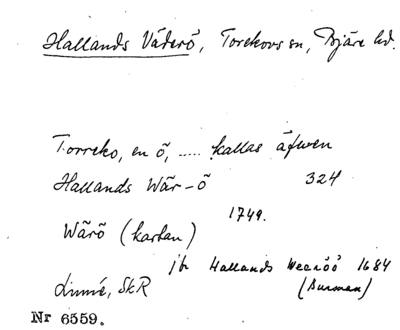 Hallands Väderö, Torekovs sn, Bjäre hd.
Torreko, en ö, ..... kallas äfwen
Hallands Wär-ö 324
1749.
Wärö (kartan)
jfr Hallands Weeröö 1684
Linné, SkR (Burman)
Nr 6559.